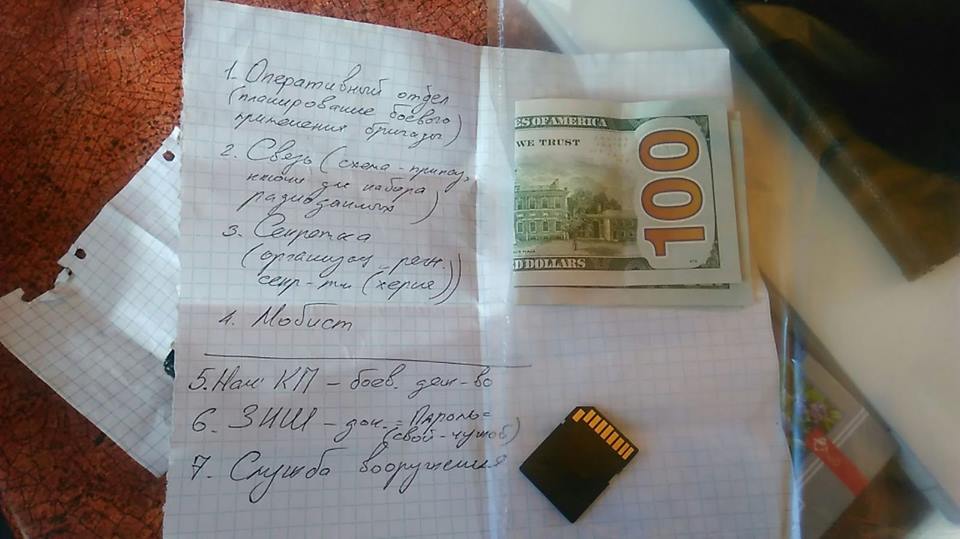 1. Оперативный отдел
(планирование боевого
применения бригады)
2. Связь (схема-припод,
ключи для набора
радиоданных)
3. Секретка
(организац. реж.
секр-ти (херня))
4. Мобист
5. Нач КП - боев. деж-во
6. ЗНШ - док. = Пароль =
(свой-чужой)
7. Служба вооружения
ES OF AMERICA
WE TRUST
100
D DOLLARS